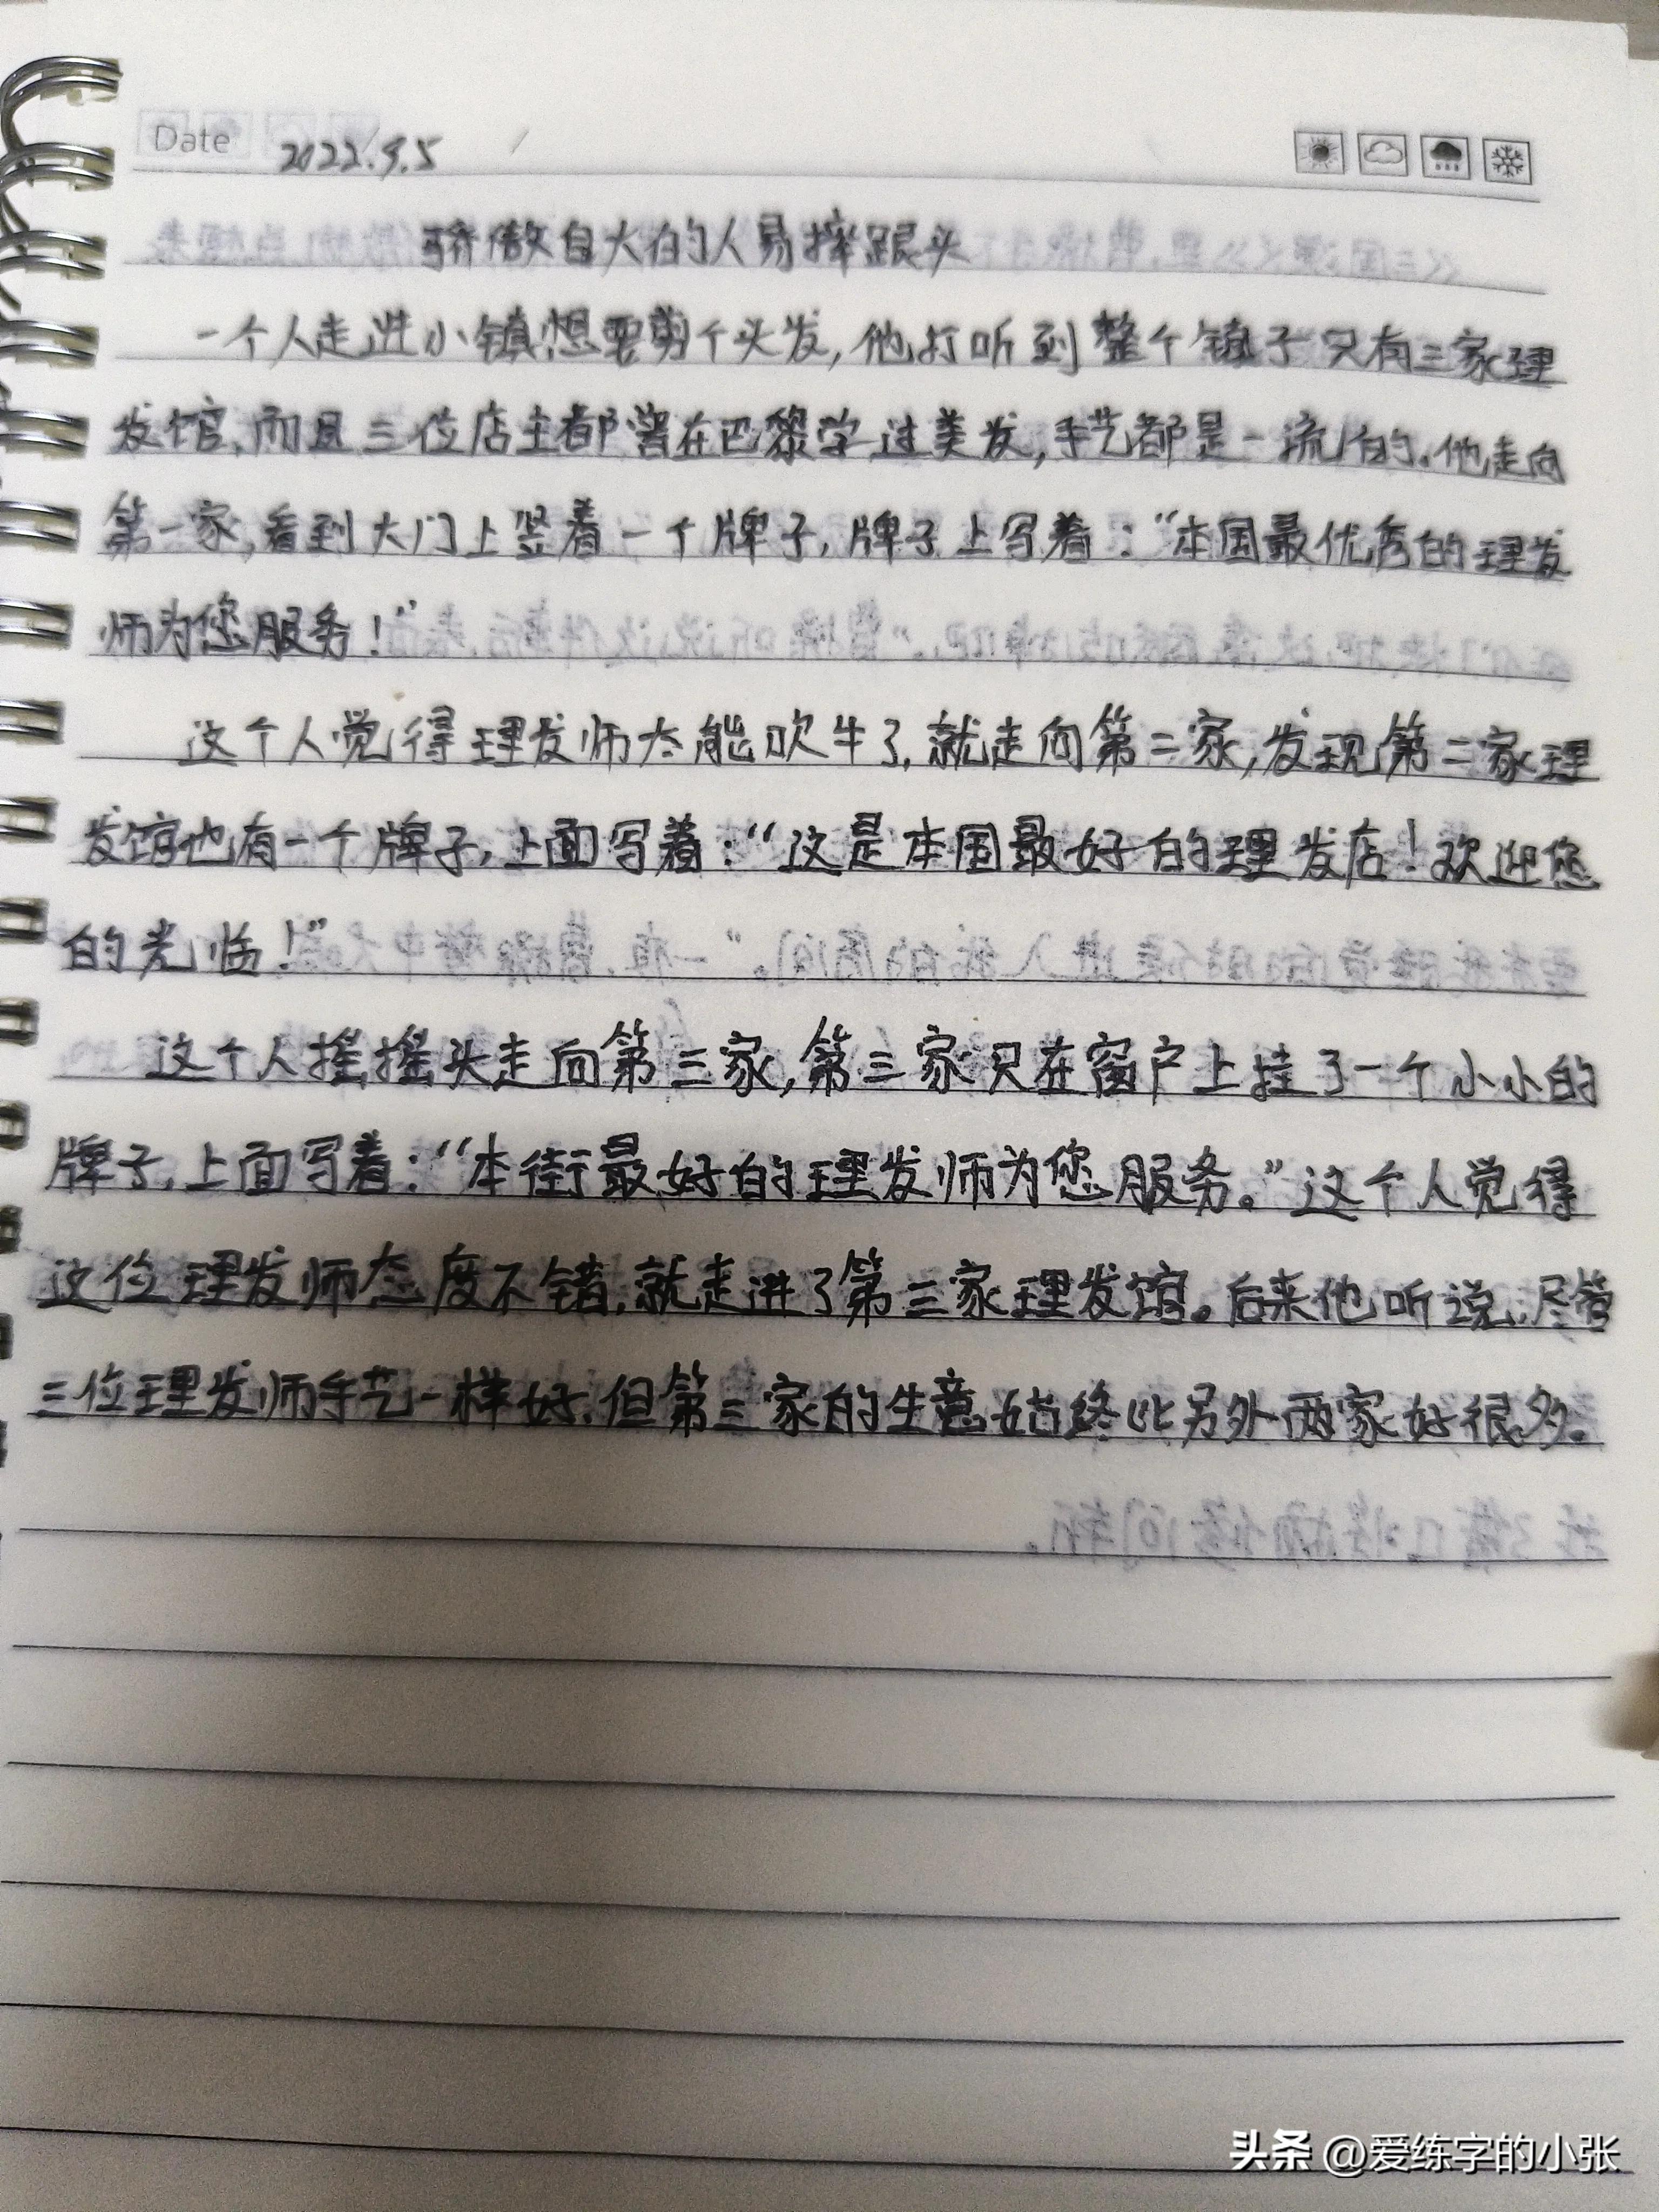 Date 2022.9.5
骄傲自大的人易摔跟头
一个人走进小镇想要剪个头发,他打听到整个镇子只有三家理
发馆,而且三位店主都曾在巴黎学过美发,手艺都是一流的。他走向
第一家,看到大门上竖着一个牌子,牌子上写着:“本国最优秀的理发
师为您服务!”
这个人觉得理发师太能吹牛了,就走向第二家,发现第二家理
发馆也有一个牌子,上面写着:“这是本国最好的理发店!欢迎您
的光临!”
这个人摇摇头走向第三家,第三家只在窗户上挂了一个小小的
牌子,上面写着:“本街最好的理发师为您服务。”这个人觉得
这位理发师态度不错,就走进了第三家理发馆。后来他听说,尽管
三位理发师手艺一样好,但第三家的生意始终比另外两家好很多。
头条 @爱练字的小张